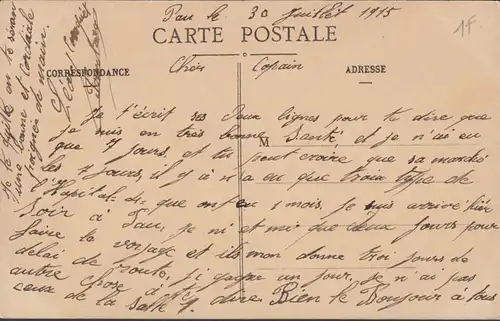 Pau le 30 Juillet 1915
1F
CARTE POSTALE
CORRESPONDANCE
ADRESSE
Cher Copain
Je t'écrit ses deux lignes pour te dire que
je suis en très bonne Santé et je n'ai eu
M
que 7 jours, et tu peut croire que sa marché
les 7 jours, il y a n'a eu que trois type de
l'hopital 4 que on eu 1 mois, je suis arrivé hier
soir à Pau, je ni et mi que deux jours pour
faire le voyage et ils mon donne troi jours de
delai de route, j'i gagne un jour, je n'ai pas
autre chose à te dire, Bien le Bonjour à tous
ceux de la Salle 4.
Je te quitte en te
d'une bonne et cordiale
poignée de main.